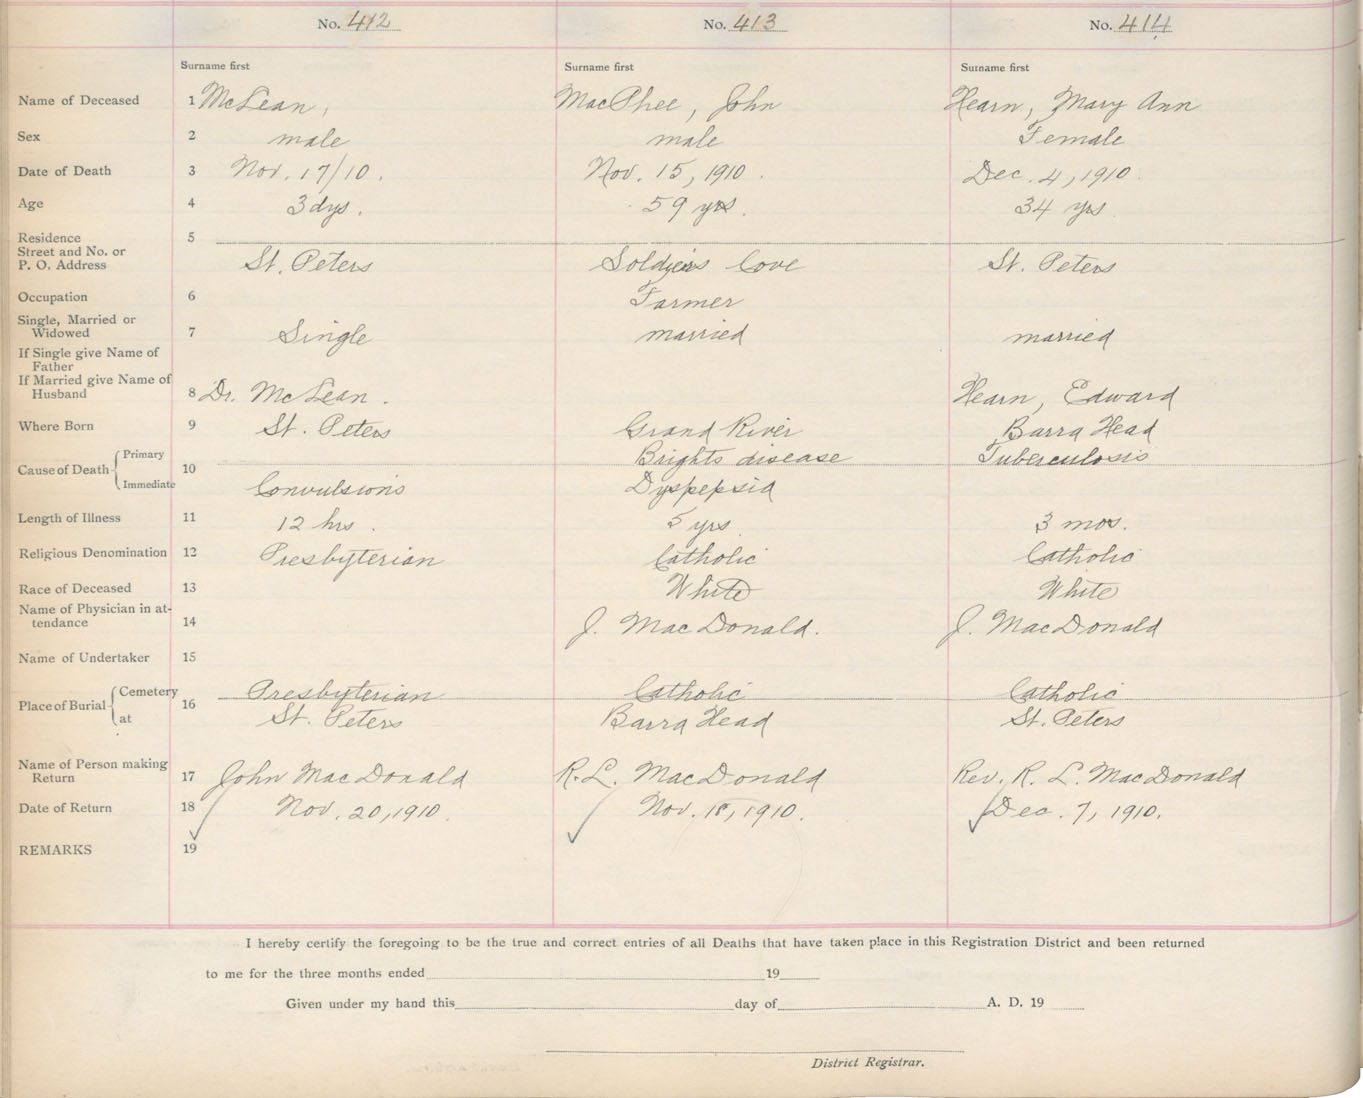 No. 412 No. 413 No. 414
Surname first Surname first Surname first
Name of Deceased 1 McLean, MacPhee, John Hearn, Mary Ann
Sex 2 male male Female
Date of Death 3 Nov. 17/10. Nov. 15, 1910. Dec. 4, 1910.
Age 4 3 dys. 59 yrs. 34 yrs
Residence 5
Street and No. or
P. O. Address St. Peters Soldiers Cove St. Peters
Occupation 6 Farmer
Single, Married or
Widowed 7 Single married married
If Single give Name of
Father
If Married give Name of
Husband 8 Dr. McLean. Hearn, Edward
Where Born 9 St. Peters Grand River Barra Head
Cause of Death 10 Primary Brights disease Tuberculosis
Immediate Convulsions Dyspepsia
Length of Illness 11 12 hrs. 5 yrs 3 mos.
Religious Denomination 12 Presbyterian Catholic Catholic
Race of Deceased 13 White White
Name of Physician in at-
tendance 14 J. MacDonald. J. MacDonald
Name of Undertaker 15
Place of Burial 16 Cemetery Presbyterian Catholic Catholic
at St. Peters Barra Head St. Peters
Name of Person making
Return 17 John MacDonald R. L. MacDonald Rev. R. L. MacDonald
Date of Return 18 Nov. 20, 1910. Nov. 18, 1910. Dec. 7, 1910.
REMARKS 19
I hereby certify the foregoing to be the true and correct entries of all Deaths that have taken place in this Registration District and been returned
to me for the three months ended 19
Given under my hand this day of A. D. 19
District Registrar.